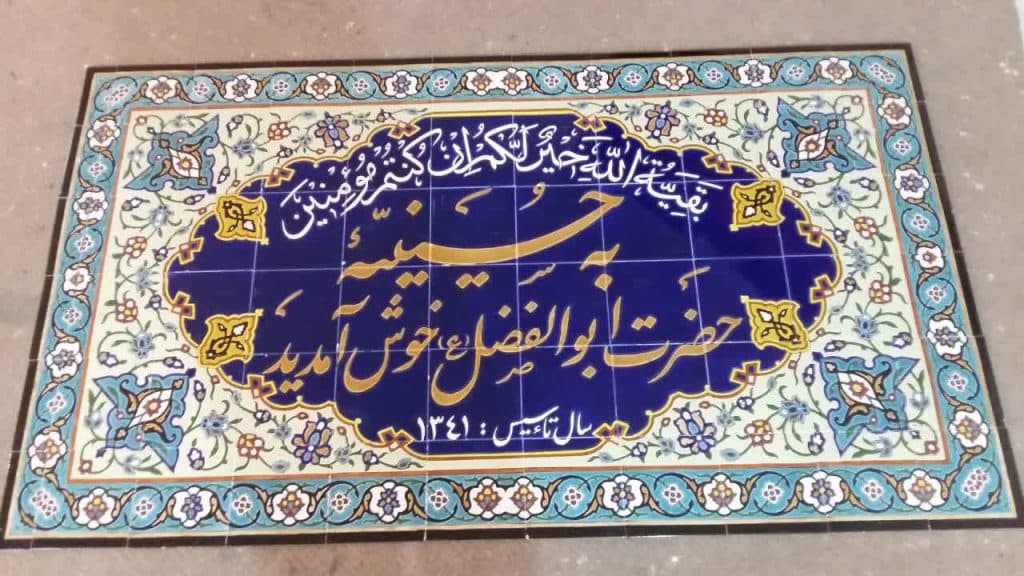 بَقِیَّةُ اللّٰهِ خَیْرٌ لَّکُمْ اِنْ کُنْتُمْ مُؤْمِنِینَ
به حسینیهٔ
حضرت ابوالفضل (ع) خوش آمدید
سال تاءسیس : ۱۳٤۱